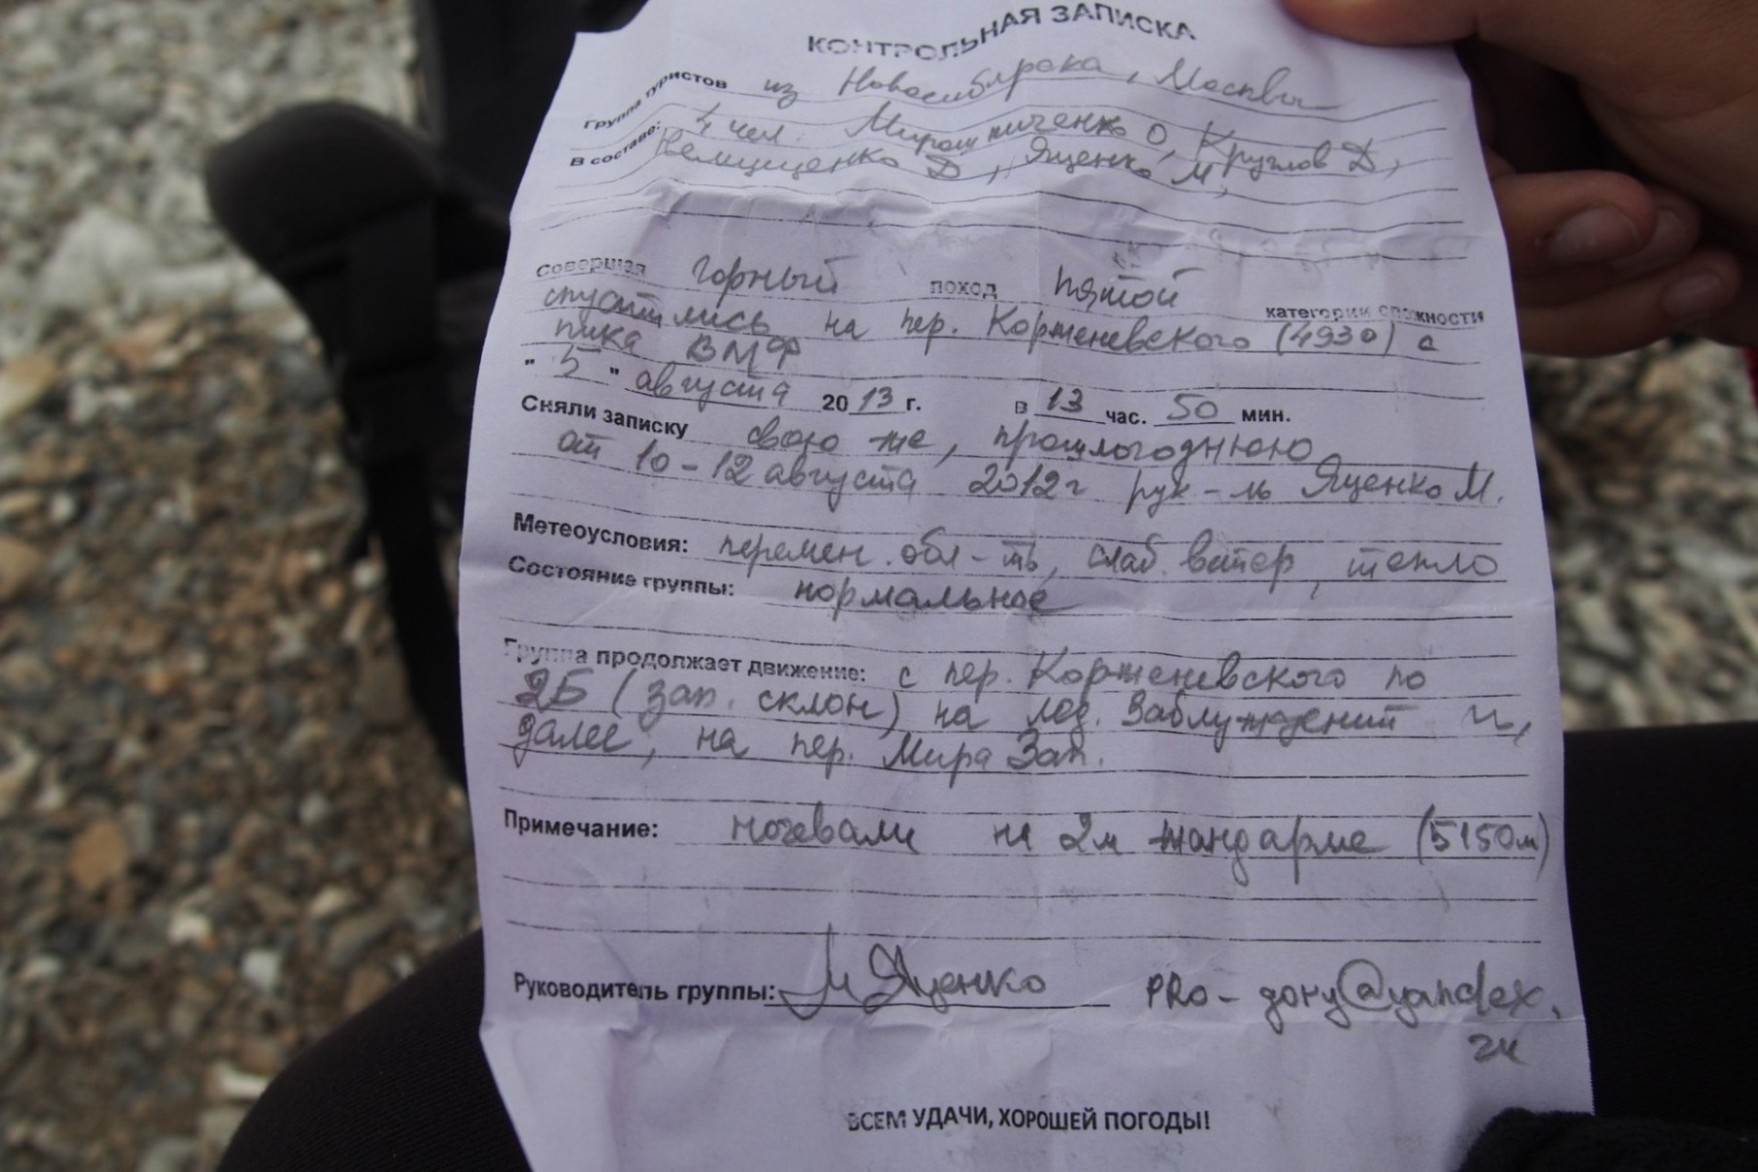 КОНТРОЛЬНАЯ ЗАПИСКА
Группа туристов из Новосибирска, Москвы
В составе: 4 чел. Мирошниченко О, Круглов Д,
Д, Ященко М,
Совершая горный поход пятой категории сложности
спустились на пер. Корженевского (4930) с
пика ВМФ
" 5 " августа 2013 г. в 13 час. 50 мин.
Сняли записку свою же, прошлогоднюю
от 10-12 августа 2012г рук-ль Ященко М.
Метеоусловия: перемен. обл-ть, слаб. ветер, тепло
Состояние группы: нормальное
Группа продолжает движение: с пер. Корженевского по
2Б (зап. склон) на лед. Заблуждений и,
далее, на пер. Мира Зап.
Примечание: ночевали на 2м жандарме (5150м)
Руководитель группы: М Ященко PRO-gory@yandex.
ru
ВСЕМ УДАЧИ, ХОРОШЕЙ ПОГОДЫ!